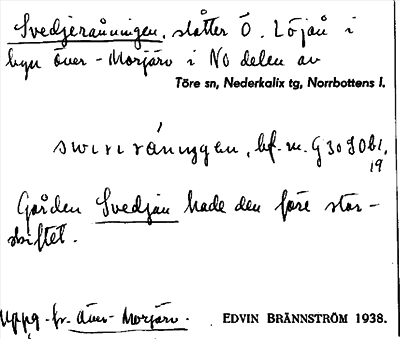 Svedjeråningen, slåtter Ö. Löjån i
byn Över-Morjärv i NO delen av
Töre sn, Nederkalix tg, Norrbottens l.
bf. m.
19
Gården Svedjan hade den före stor-
skiftet.
Uppg. fr. Över-Morjärv.
EDVIN BRÄNNSTRÖM 1938.